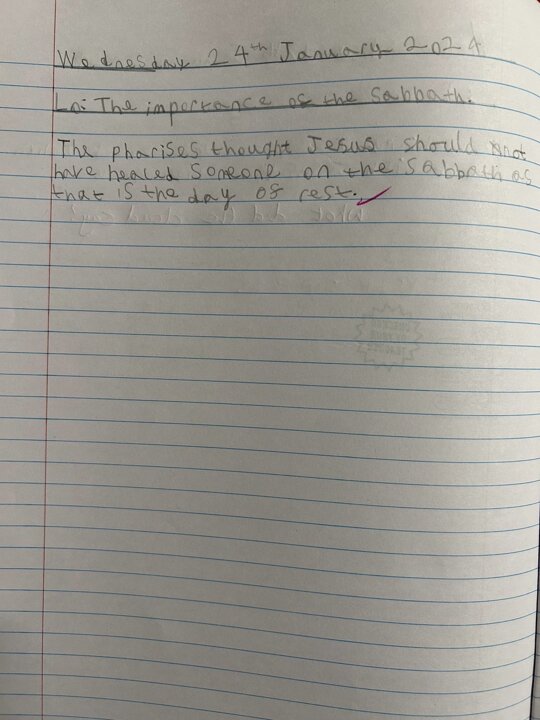 Wednesday 24th January 2024
Ln: The importance of the Sabbath.
The pharises thought Jesus should not
have healed someone on the Sabbath as
that is the day of rest.